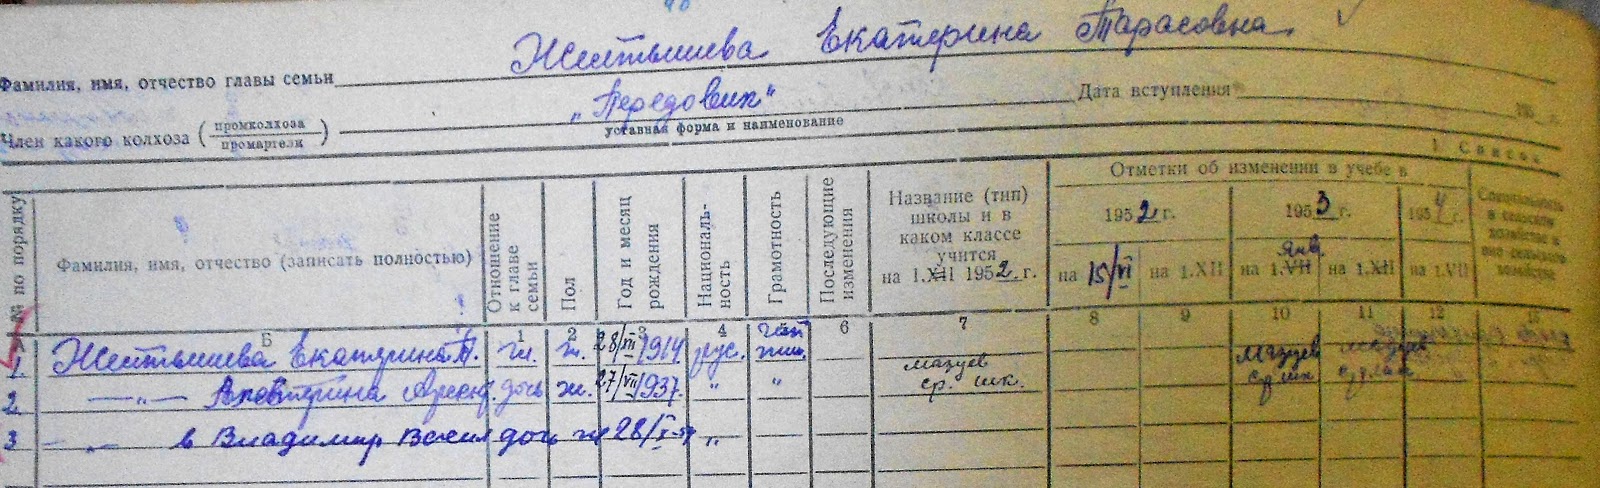 Жентышева Екатерина Тарасовна
Фамилия, имя, отчество главы семьи
"Передовик"
Дата вступления
Член какого колхоза (промколхоза промартели)
уставная форма и наименование
195 г.
1. Список
№ по порядку
Фамилия, имя, отчество (записать полностью)
Отношение к главе семьи
Пол
Год и месяц рождения
Националь-ность
Грамотность
Последующие изменения
Название (тип) школы и в каком классе учится на 1.XII 1952 г.
Отметки об изменении в учебе в
1952 г.
1953 г.
1954 г.
на 15/VI
на 1.XII
на 1.VII янв
на 1.XII
на 1.VII
Специальность в сельском хозяйстве и вне сельского хозяйства
Б 1 2 3 4 5 6 7 8 9 10 11 12 13
1 Жентышева Екатерина Т. гл. ж. 28/XII 1914 рус.
2 —"— дочь ж. 27/VII 1937. " " ср. шк.
3 —"— Владимир дочь ж 28/X "